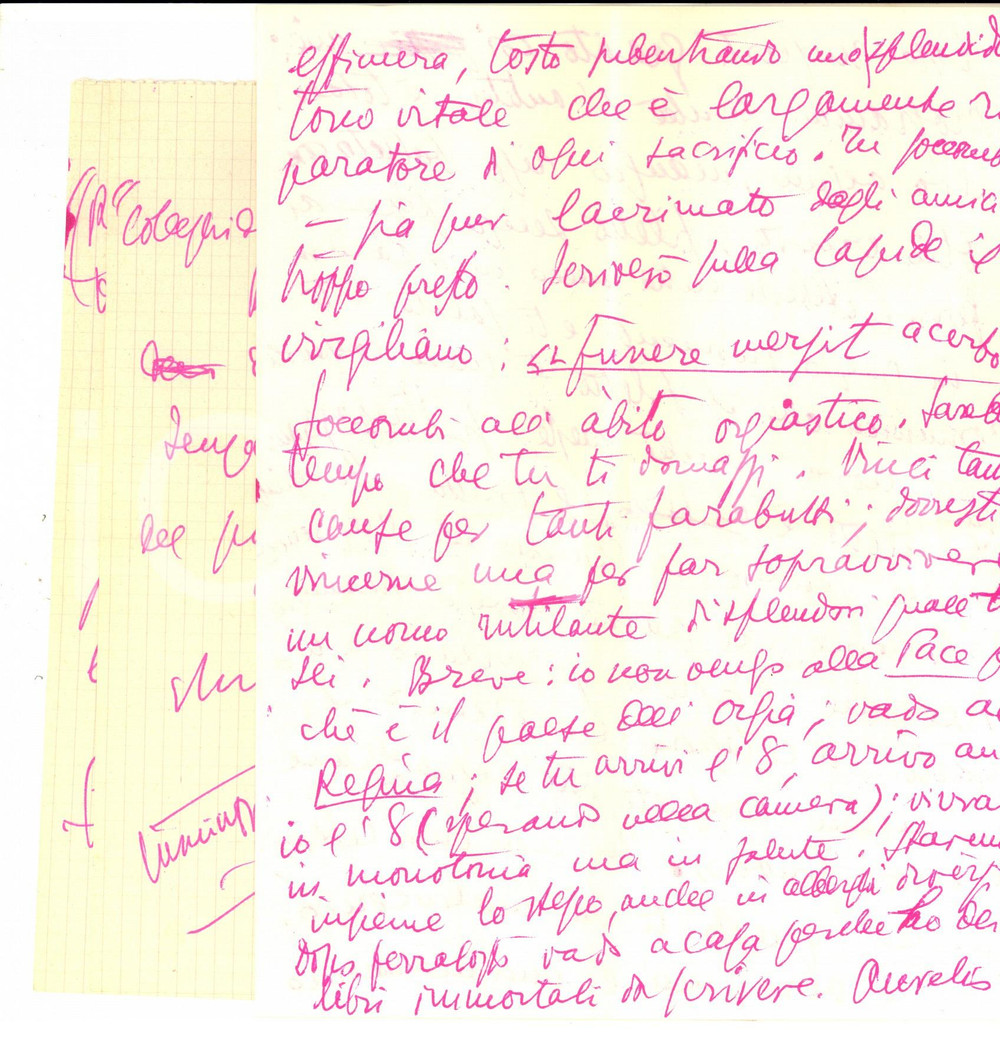 "Colleghi
Senza
effimera, tosto subentrando uno splendido
tono vitale che è largamente ri
paratore di ogni sacrificio. Tu soccomb
– sia pur lacrimato dagli amici
troppo presto. Scriverò sulla lapide il
virgiliano: "Funere mersit acerbo
soccombi all'àbito orgiastico. Sareb
tempo che tu ti domassi. Vinci tan
cause per tanti farabutti; dovresti
vincerne una per far sopravvivere
un uomo rutilante di splendori quale tu
sei. Breve: io non vengo alla Pace p
chè è il paese dell'orgia; vado a
Regina; se tu arrivi l'8, arrivo an
io l'8 (sperando nella camera); vivrò
in monotonia ma in salute. Starem
insieme lo stesso, anche in alberghi diversi
Dopo ferragosto vado a casa perché ho dei
libri immortali da scrivere. Aurelio